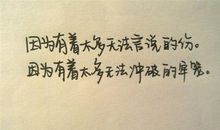 因为有着太多无法言说的伤。
因为有着太多无法冲破的牢笼。